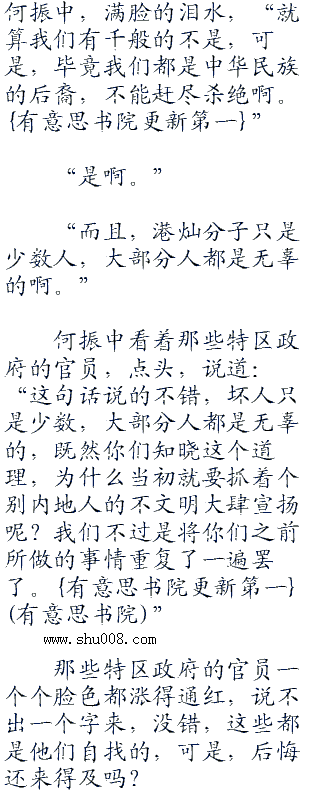 何振中，满脸的泪水，“就
算我们有千般的不是，可
是，毕竟我们都是中华民族
的后裔，不能赶尽杀绝啊。
{有意思书院更新第一}”
“是啊。”
“而且，港灿分子只是
少数人，大部分人都是无辜
的啊。”
何振中看着那些特区政
府的官员，点头，说道：
“这句话说的不错，坏人只
是少数，大部分人都是无辜
的，既然你们知晓这个道
理，为什么当初就要抓着个
别内地人的不文明大肆宣扬
呢？我们不过是将你们之前
所做的事情重复了一遍罢
了。{有意思书院更新第一}
(有意思书院)”
www.shu008.com
那些特区政府的官员一
个个脸色都涨得通红，说不
出一个字来，没错，这些都
是他们自找的，可是，后悔
还来得及吗？